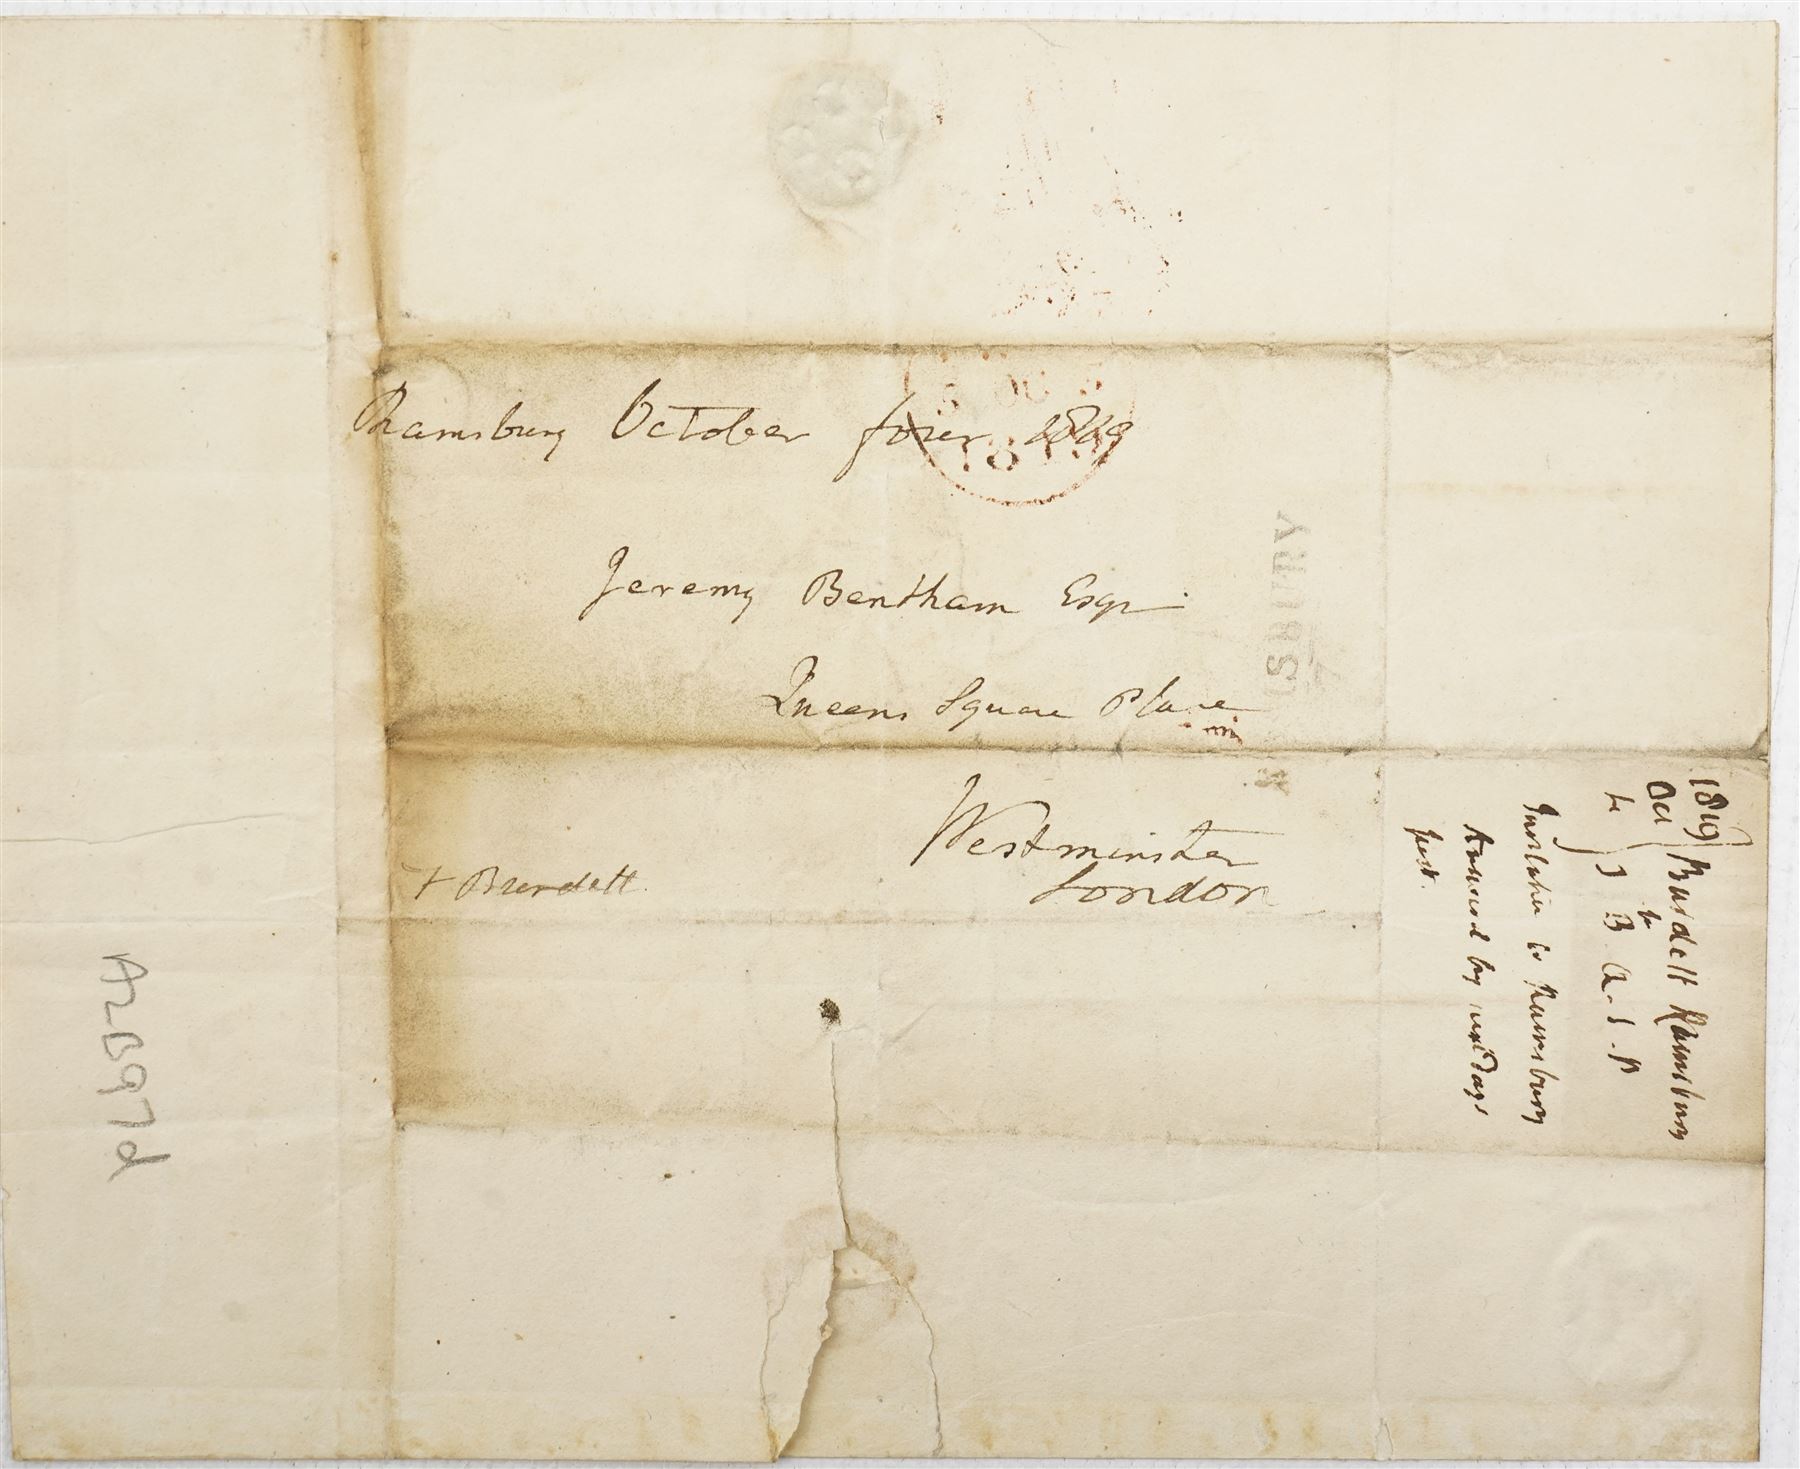 Ramsbury October four 1819
Jeremy Bentham Esqr
Queens Square Place
Westminster
London
F Burdett
5 OC 5
181
ISBURY
1819
Oct
4
Burdett Ramsbury
to
J B Q. S. P
Invitation to Ramsbury
Answered by next days
post.
A2B97d